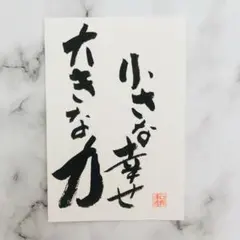 小さな幸せ
大きな力